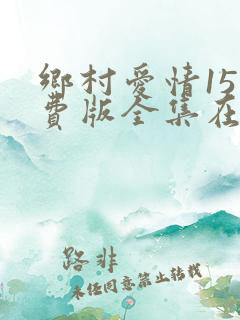 鄉村愛情15
費版全集在
路非
未经同意禁止转载